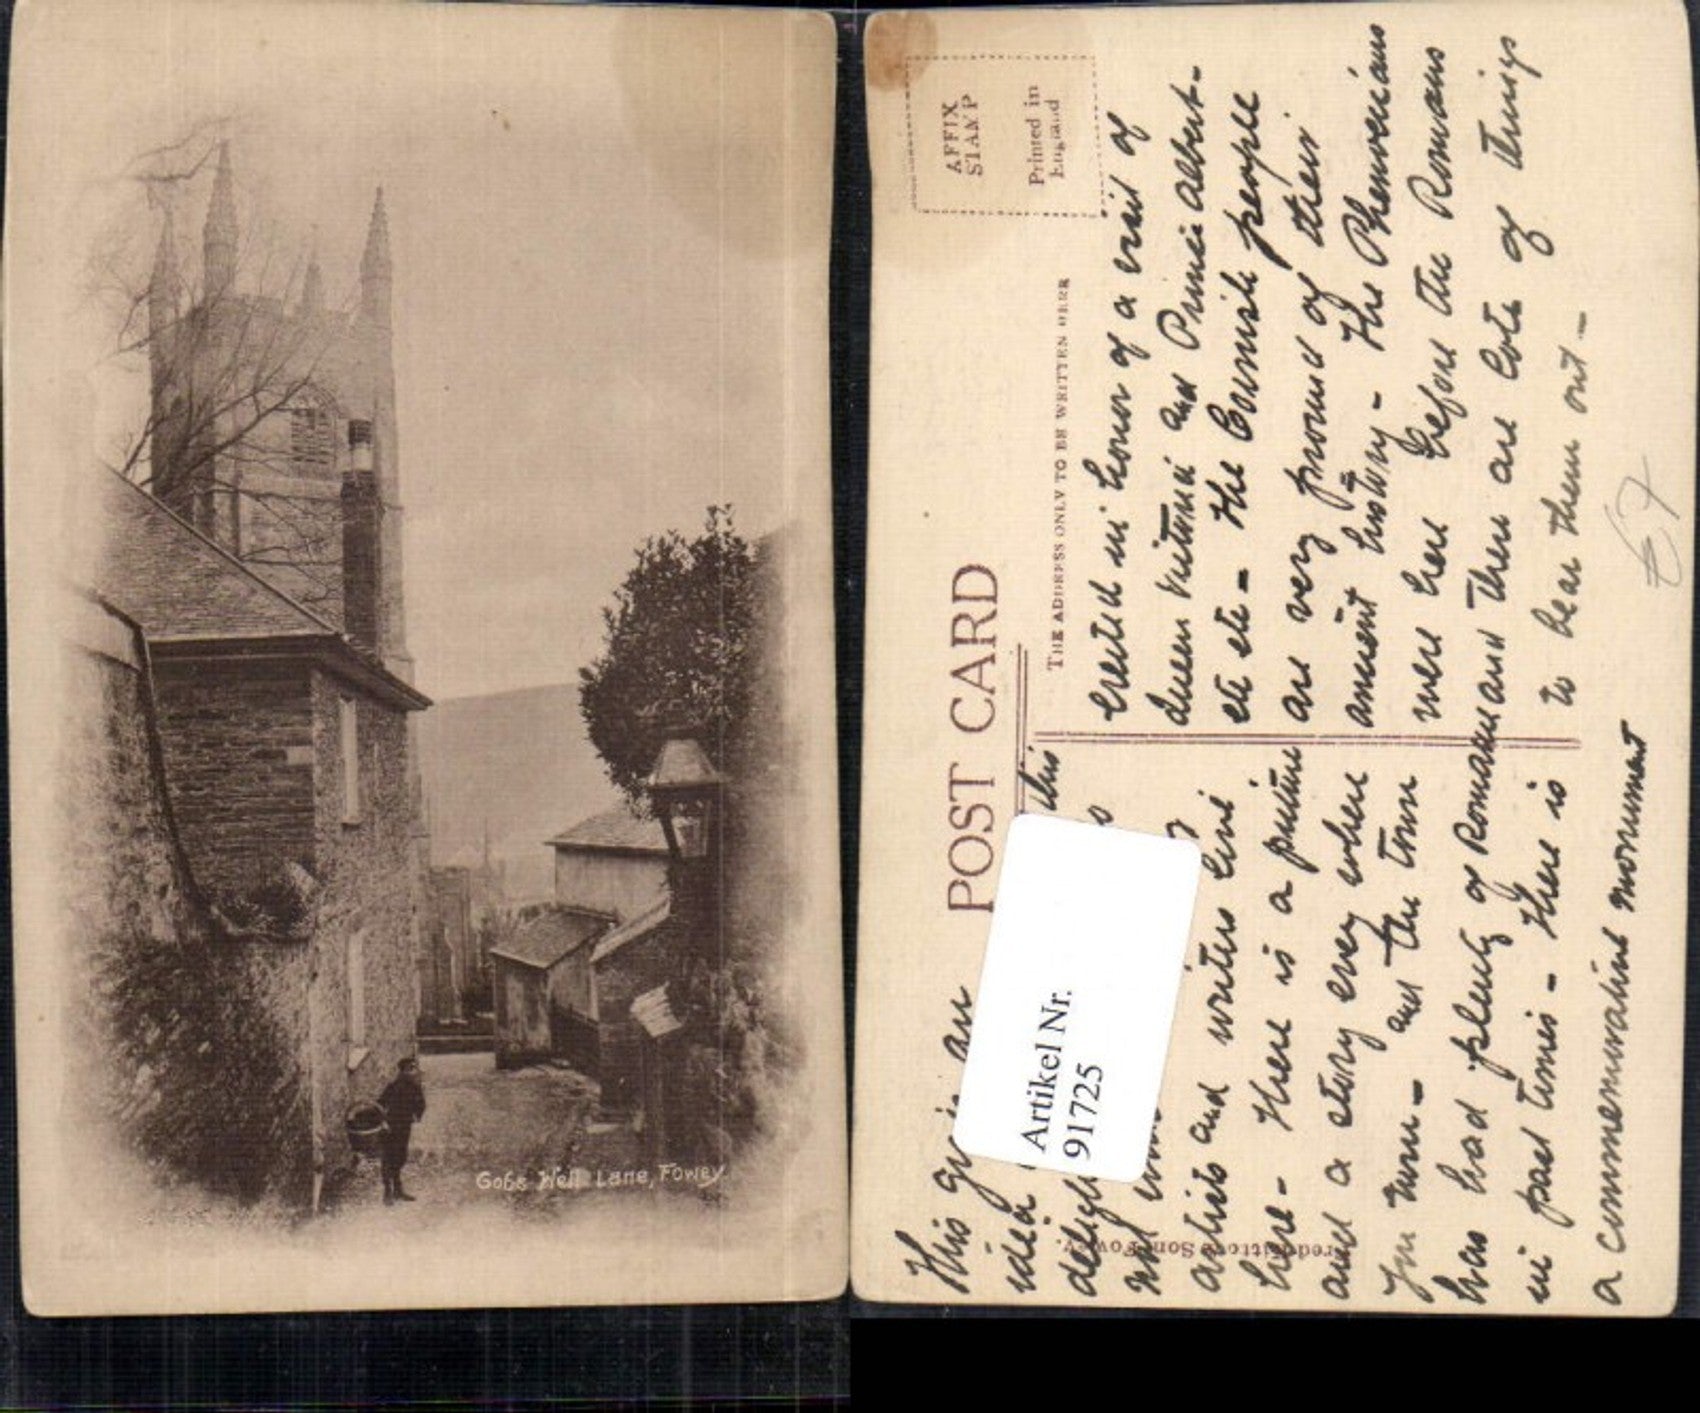 Gobs Well Lane, Fowey.
POST CARD
AFFIX
STAMP
Printed in
England
THE ADDRESS ONLY TO BE WRITTEN HERE
This gi an
idea this
delight
not
artists and writers live
here - There is a picture
and a story every where
you turn - and the town
has had plenty of Romance
in past times - There is
a commemorative monument
erected in honor of a visit of
Queen Victoria and Prince Albert -
etc etc - The Cornish people
are very proud of their
ancient history - The Phenoecians
were here before the Romans
and there are lots of things
to bear them out -
Son, Fowey.
Artikel Nr.
91725
€7